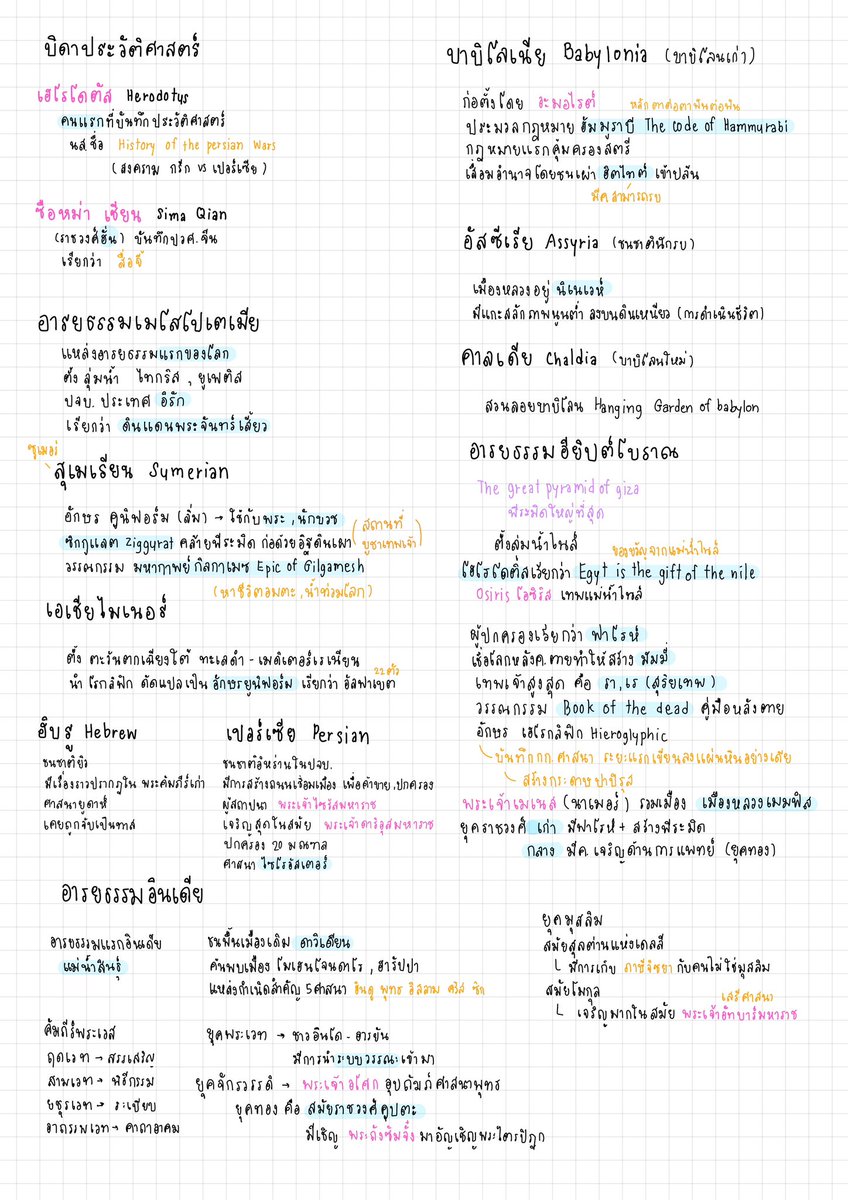 บิดาประวัติศาสตร์
เฮโรโดตัส Herodotus
คนแรกที่บันทึกประวัติศาสตร์
นส.ชื่อ History of the persian Wars
(สงคราม กรีก vs เปอร์เซีย)
ซือหม่า เชียน Sima Qian
(ราชวงศ์ฮั่น) บันทึกปวศ.จีน
เรียกว่า สื่อจี้
อารยธรรมเมโสโปเตเมีย
แหล่งอารยธรรมแรกของโลก
ตั้ง ลุ่มน้ำ ไทกริส , ยูเฟติส
ปจบ. ประเทศ อิรัก
เรียกว่า ดินแดนพระจันทร์เสี้ยว
ซูเมอร์
สุเมเรียน Symerian
อักษร คูนิฟอร์ม (ลิ่ม) → ใช้กับพระ , นักบวช
ซิกกูแลต Ziggyrat คล้ายพีระมิด ก่อด้วยอิฐดินเผา (สถานที่บูชาเทพเจ้า)
วรรณกรรม มหากาพย์ กิลกาเมซ Epic of Gilgamesh
(หาชีวิตอมตะ , น้ำท่วมโลก)
เอเชียไมเนอร์
ตั้ง ตะวันตกเฉียงใต้ ทะเลดำ - เมดิเตอร์เรเนียน
นำ โรกลิฟิก ดัดแปลเป็น อักษรยูนิฟอร์ม เรียกว่า อัลฟาเบต
22 ตัว
ฮิบรู Hebrew
ชนชาติยิว
มีเรื่องราวปรากฏใน พระคัมภีร์เก่า
ศาสนายูดาห์
เคยถูกจับเป็นทาส
เปอร์เซีย Persian
ชนชาติอิหร่านในปจบ.
มีการสร้างถนนเชื่อมเมือง เพื่อค้าขาย,ปกครอง
ผู้สถาปนา พระเจ้าไซรัสมหาราช
เจริญสุดในสมัย พระเจ้าดาริอุสมหาราช
ปกครอง 20 มณฑล
ศาสนา โซโรอัสเตอร์
บาบิโลเนีย Babylonia (บาบิโลนเก่า)
ก่อตั้งโดย อะมอไรต์ หลัก ตาต่อตาฟันต่อฟัน
ประมวลกฎหมาย ฮัมมูราบี The code of Hammurabi
กฎหมายแรกคุ้มครองสตรี
เสื่อมอำนาจโดยชนเผ่า ฮิตไทต์ เข้าปล้น
มีค.สามารถรบ
อัสซีเรีย Assyria (ชนชาตินักรบ)
เมืองหลวงอยู่ นิเนเวห์
มีแกะสลักภาพนูนต่ำ ลงบนดินเหนียว (การดำเนินชีวิต)
คาลเดีย Chaldia (บาบิโลนใหม่)
สวนลอยบาบิโลน Hanging Garden of babylon
อารยธรรมอียิปต์โบราณ
The great pyramid of giza
พีระมิดใหญ่ที่สุด
ตั้งลุ่มน้ำไนล์
ของขวัญจากแม่น้ำไนล์
เฮโรโดตัสเรียกว่า Egyt is the gift of the nile
Osiris โอซิริส เทพแม่น้ำไนล์
ผู้ปกครองเรียกว่า ฟาโรห์
เชื่อโลกหลังค.ตายทำให้สร้าง มัมมี่
เทพเจ้าสูงสุด คือ รา,เร (สุริยเทพ)
วรรณกรรม Book of the dead คู่มือหลังตาย
อักษร เฮโรกลิฟิก Hieroglyphic
บันทึกกก.ศาสนา ระยะแรกเขียนลงแผ่นหินอย่างเดีย
สร้างกระดาษปาปิรุส
พระเจ้าเมเนส (นาเมอร์) รวมเมือง เมืองหลวงเมมฟิส
ยุคราชวงศ์ เก่า มีฟาโรห์ + สร้างพีระมิด
กลาง มีค.เจริญด้านการแพทย์ (ยุคทอง)
อารยธรรมอินเดีย
อารยธรรมแรกอินเดีย
แม่น้ำสินธุ์
ชนพื้นเมืองเดิม ดาวิเดียน
ค้นพบเมือง โมเฮนโจนดาโร , ฮารัปปา
แหล่งกำเนิดสำคัญ 5ศาสนา ฮินดู พุทธ อิสลาม คริส ซิก
คัมภีร์พระเวส
ฤดเวท → สรรเสริญ
สามเวท → พิธีกรรม
ยชุรเวท → ระเบียบ
อาถรรพเวท → คาถาอาคม
ยุคพระเวท → ชาวอินโด - อารยัน
มีการนำระบบวรรณะเข้ามา
ยุคจักรวรรดิ → พระเจ้าอโศก อุปถัมภ์ศาสนาพุทธ
ยุคทอง คือ สมัยราชวงศ์คุปตะ
มีเชิญ พระถังซัมจั๋ง มาอัญเชิญพระไตรปิฎก
ยุคมุสลิม
สมัยสุลต่านแห่งเดลลี
มีการเก็บ ภาษีจิซยา กับคนไม่ใช่มุสลิม
สมัยโมกุล
เสรีศาสนา
เจริญมากในสมัย พระเจ้าอักบาร์มหาราช